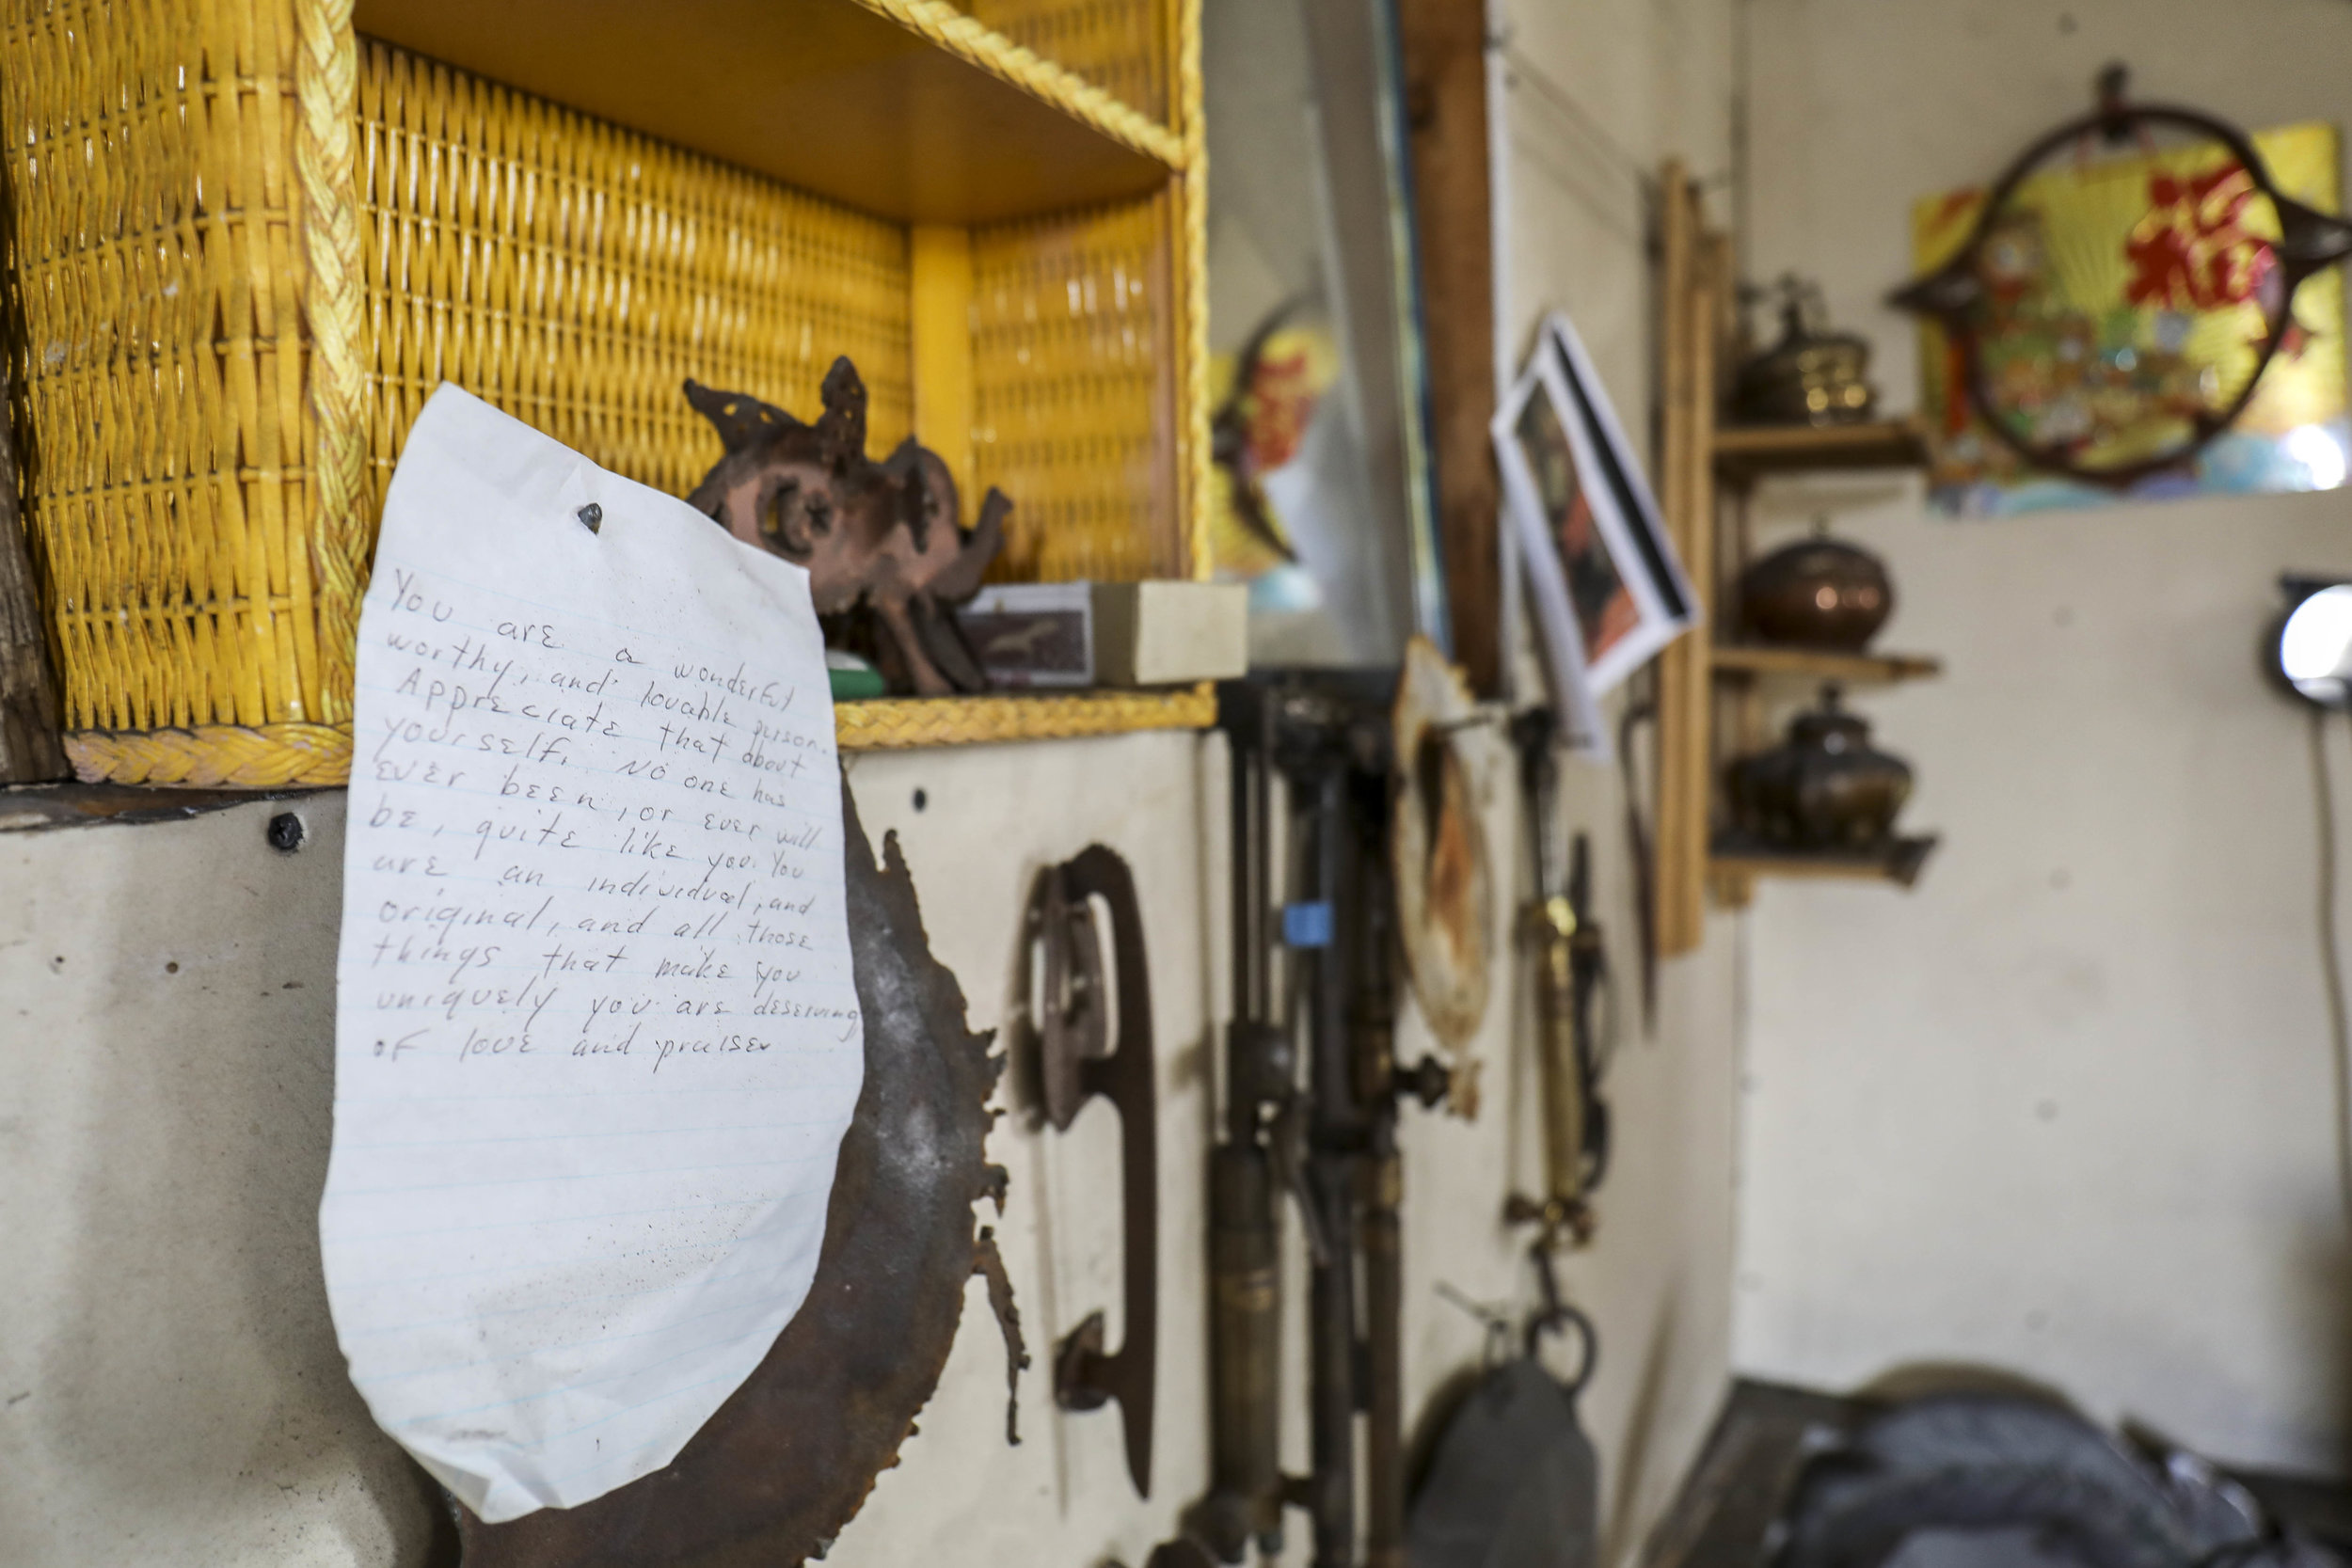 You are a wonderful
worthy, and lovable person.
Appreciate that about
yourself. No one has
ever been, or ever will
be, quite like you. You
are an individual, and
original, and all those
things that make you
uniquely you are deserving
of love and praise